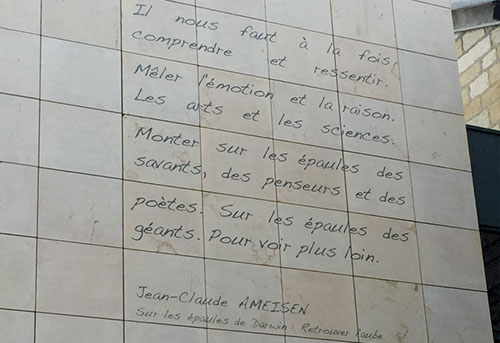 Il nous faut à la fois
comprendre et ressentir.
Mêler l'émotion et la raison.
Les arts et les sciences.
Monter sur les épaules des
savants, des penseurs et des
poètes. Sur les épaules des
géants. Pour voir plus loin.
Jean-Claude AMEISEN
Sur les épaules de Darwin : Retrouver l'aube